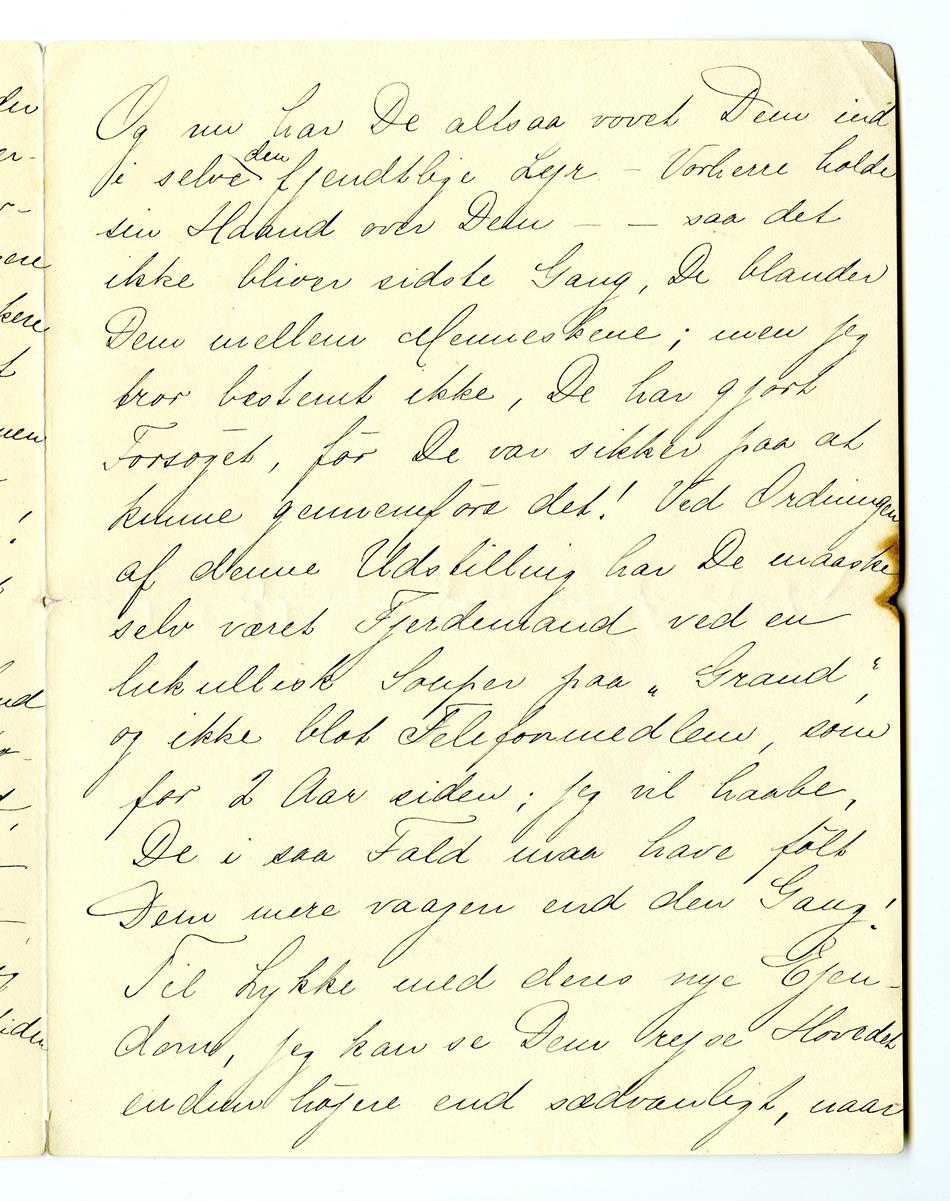 Og nu har De altsaa vovet Dem ind
i selve den fjendtlige Lejr – Vorherre holde
sin Haand over Dem – – saa det
ikke bliver sidste Gang, De blander
Dem mellem Menneskene; men jeg
tror bestemt ikke, De har gjort
Forsöget, för De var sikker paa at
kunne gennemföre det! Ved Ordningen
af denne Udstilling har De maaske
selv været Fjerdemand ved en
lukullisk Souper paa „Grand“,
og ikke blot Telefonmedlem, som
for 2 Aar siden; jeg vil haabe,
De i saa Fald maa have fölt
Dem mere vaagen end den Gang!
Til Lykke med deres nye Ejen-
dom, jeg kan se Dem rejse Hovedet
endnu höjere end sædvanligt, naar
der
er-
r-
kere
t
men
!
nd
siden